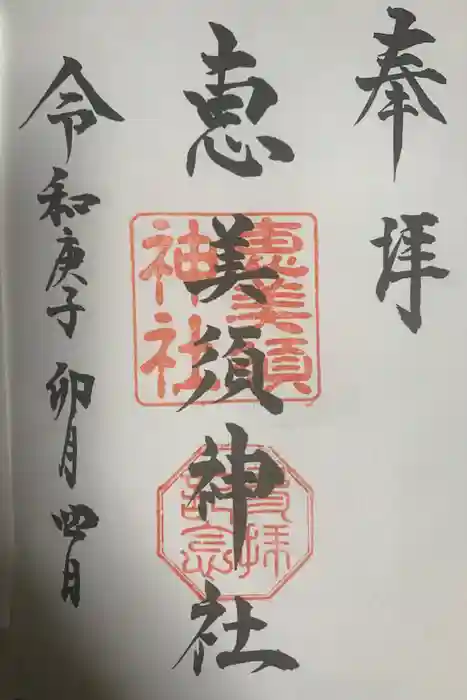 奉拝
恵美須神社
恵美須
神社
参拝
記念
令和庚子 卯月四日